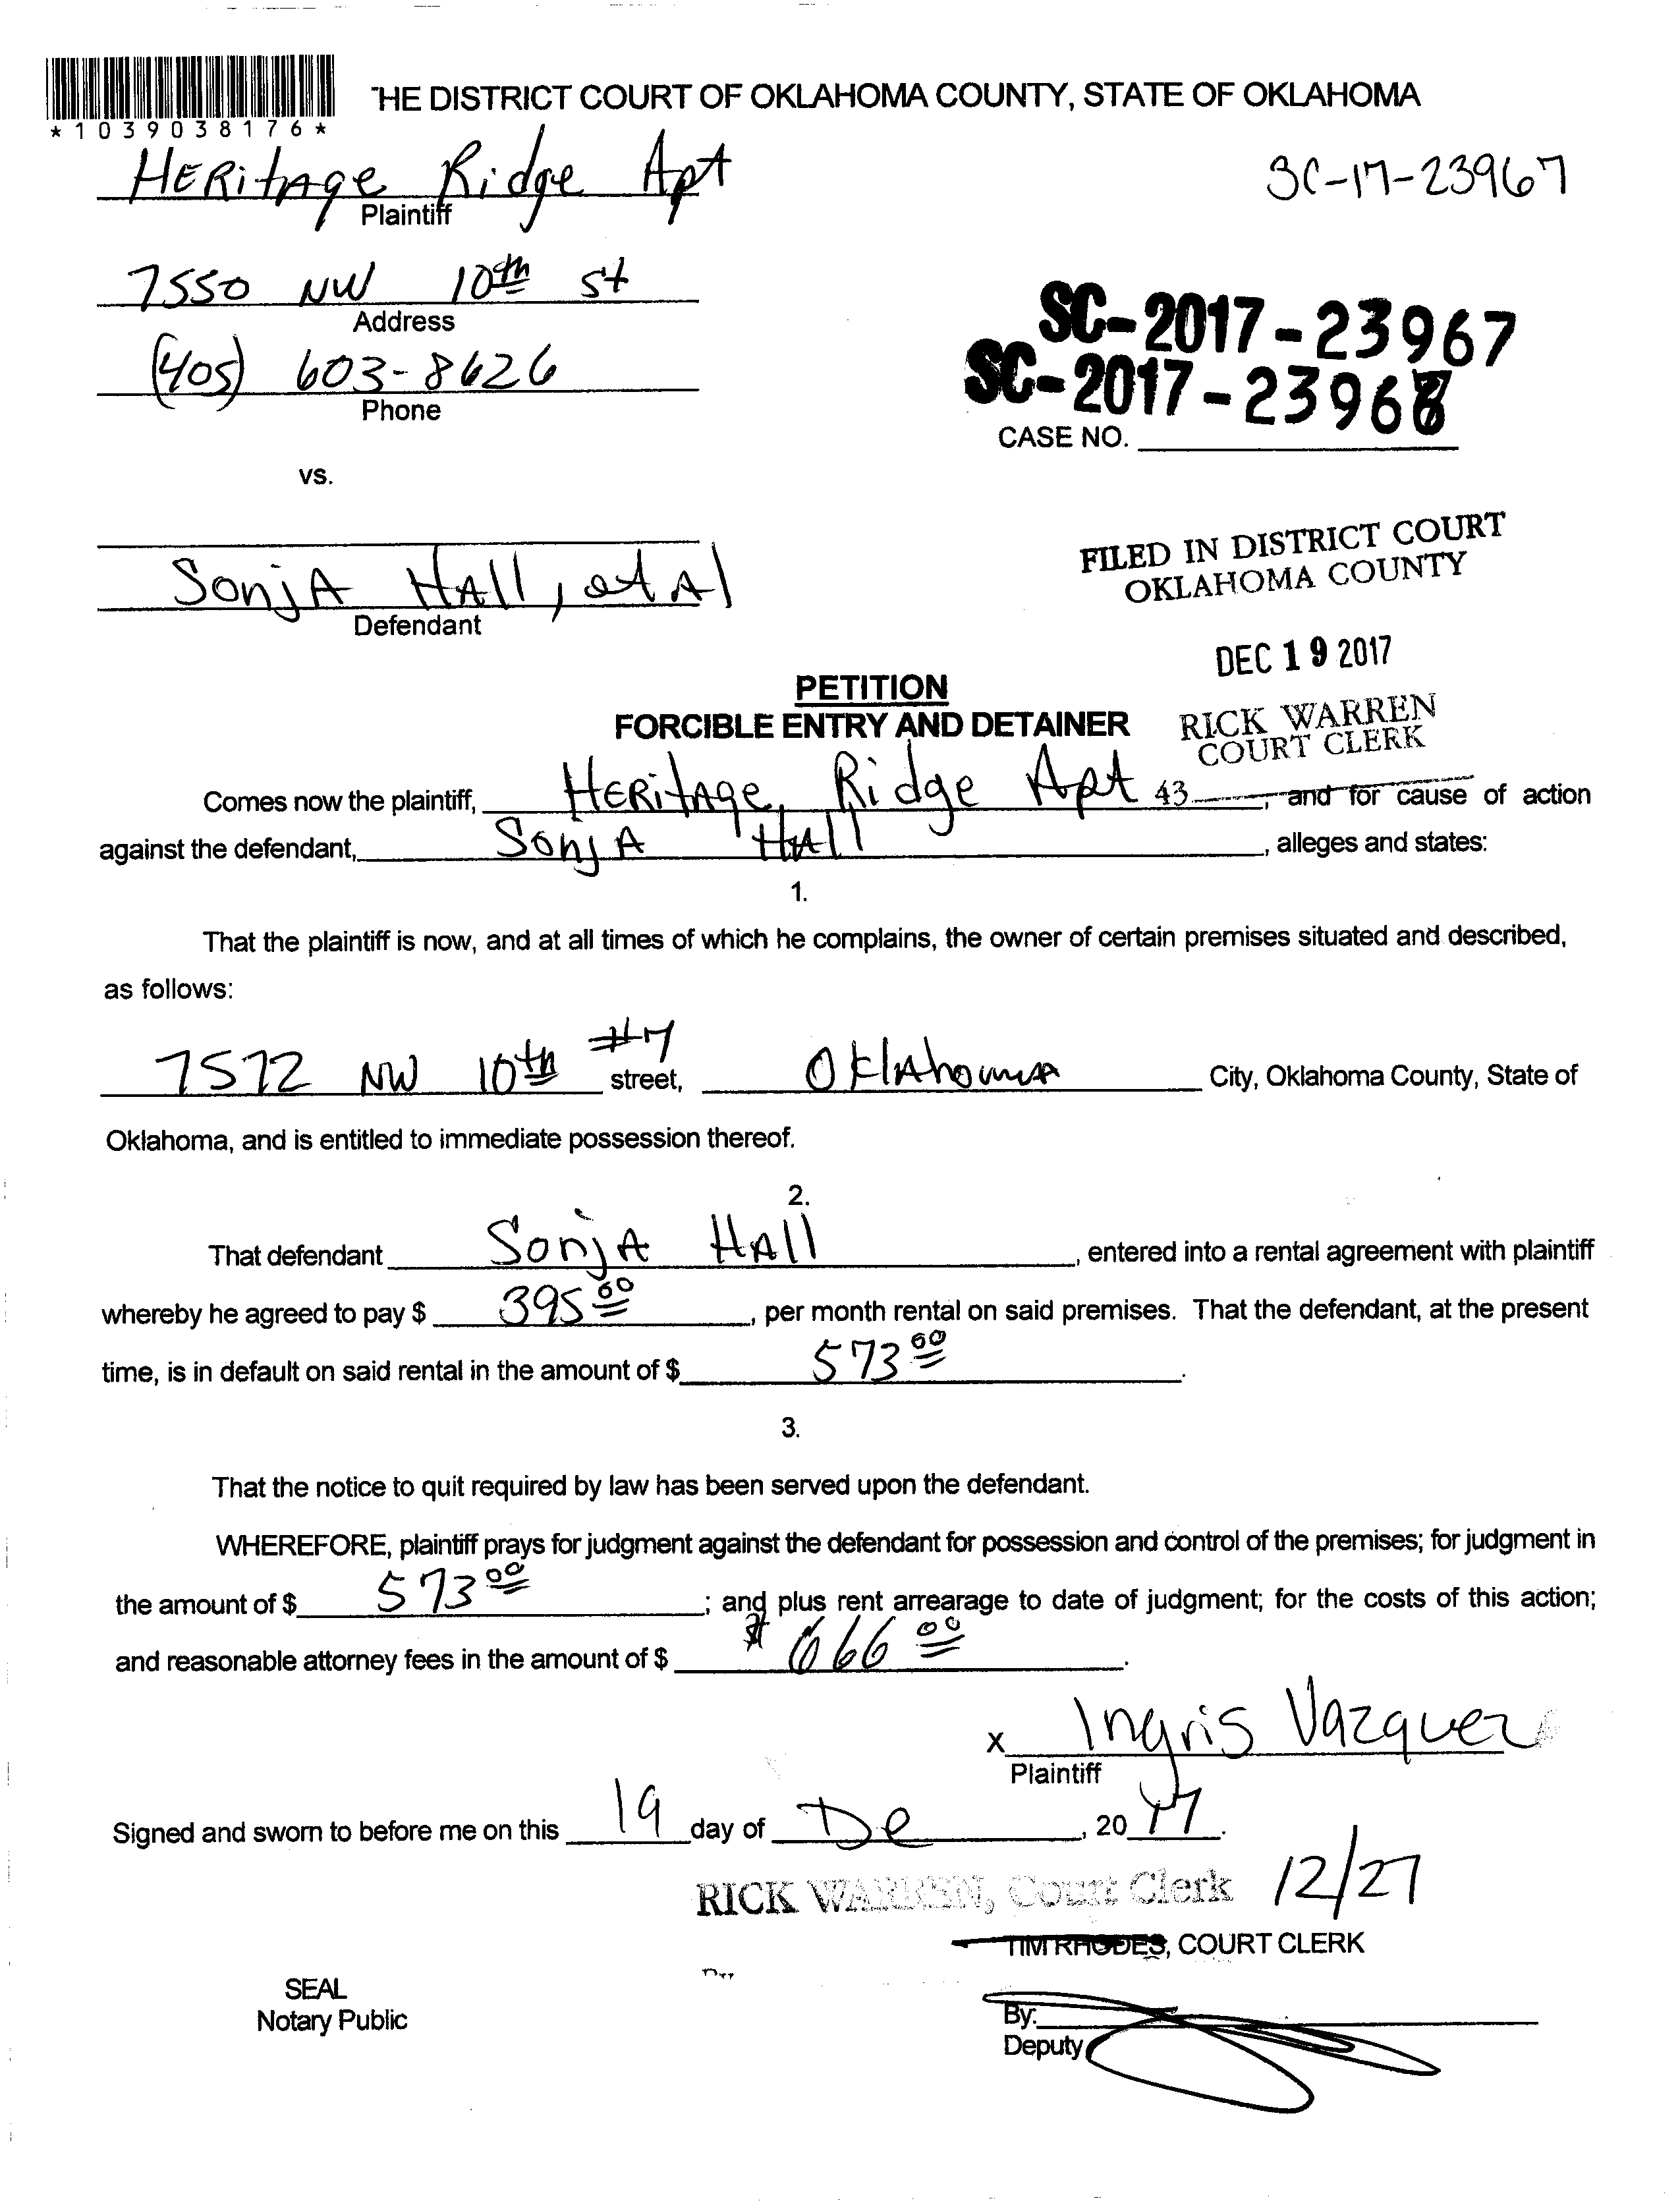 *1039038176*
THE DISTRICT COURT OF OKLAHOMA COUNTY, STATE OF OKLAHOMA
HERitAge Ridge Apt
Plaintiff
SC-17-23967
7550 NW 10th St
Address
(405) 603-8626
Phone
SC-2017-23967
SC-2017-23967
CASE NO.
vs.
SonjA HAll, et Al
Defendant
FILED IN DISTRICT COURT
OKLAHOMA COUNTY
DEC 19 2017
RICK WARREN
COURT CLERK
43
PETITION
FORCIBLE ENTRY AND DETAINER
Comes now the plaintiff, HERitAge Ridge Apt, and for cause of action
against the defendant, SonjA HAll, alleges and states:
1.
That the plaintiff is now, and at all times of which he complains, the owner of certain premises situated and described,
as follows:
7572 NW 10th #7 street, OklAhomA City, Oklahoma County, State of
Oklahoma, and is entitled to immediate possession thereof.
2.
That defendant SonjA HAll, entered into a rental agreement with plaintiff
whereby he agreed to pay $ 395 00, per month rental on said premises. That the defendant, at the present
time, is in default on said rental in the amount of $ 573 00.
3.
That the notice to quit required by law has been served upon the defendant.
WHEREFORE, plaintiff prays for judgment against the defendant for possession and control of the premises; for judgment in
the amount of $ 573 00; and plus rent arrearage to date of judgment; for the costs of this action;
and reasonable attorney fees in the amount of $ $ 666 00.
x Ingris Vazquez
Plaintiff
Signed and sworn to before me on this 19 day of De, 20 17.
RICK WARREN, Court Clerk 12/27
TIM RHODES, COURT CLERK
SEAL
Notary Public
By:
Deputy